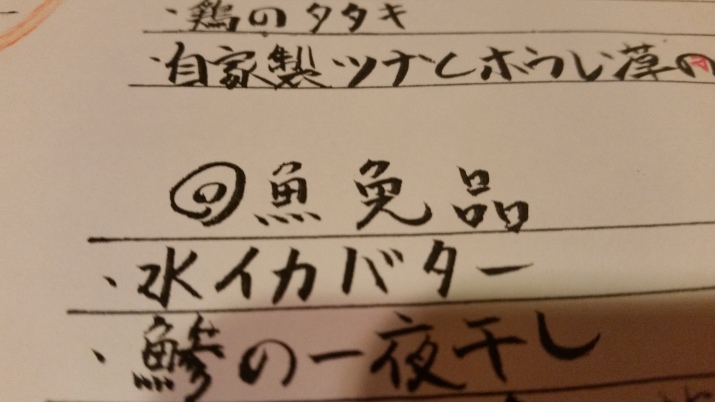 ・鶏のタタキ
・自家製ツナとホウレン草の
◎魚免品
・水イカバター
・鯵の一夜干し